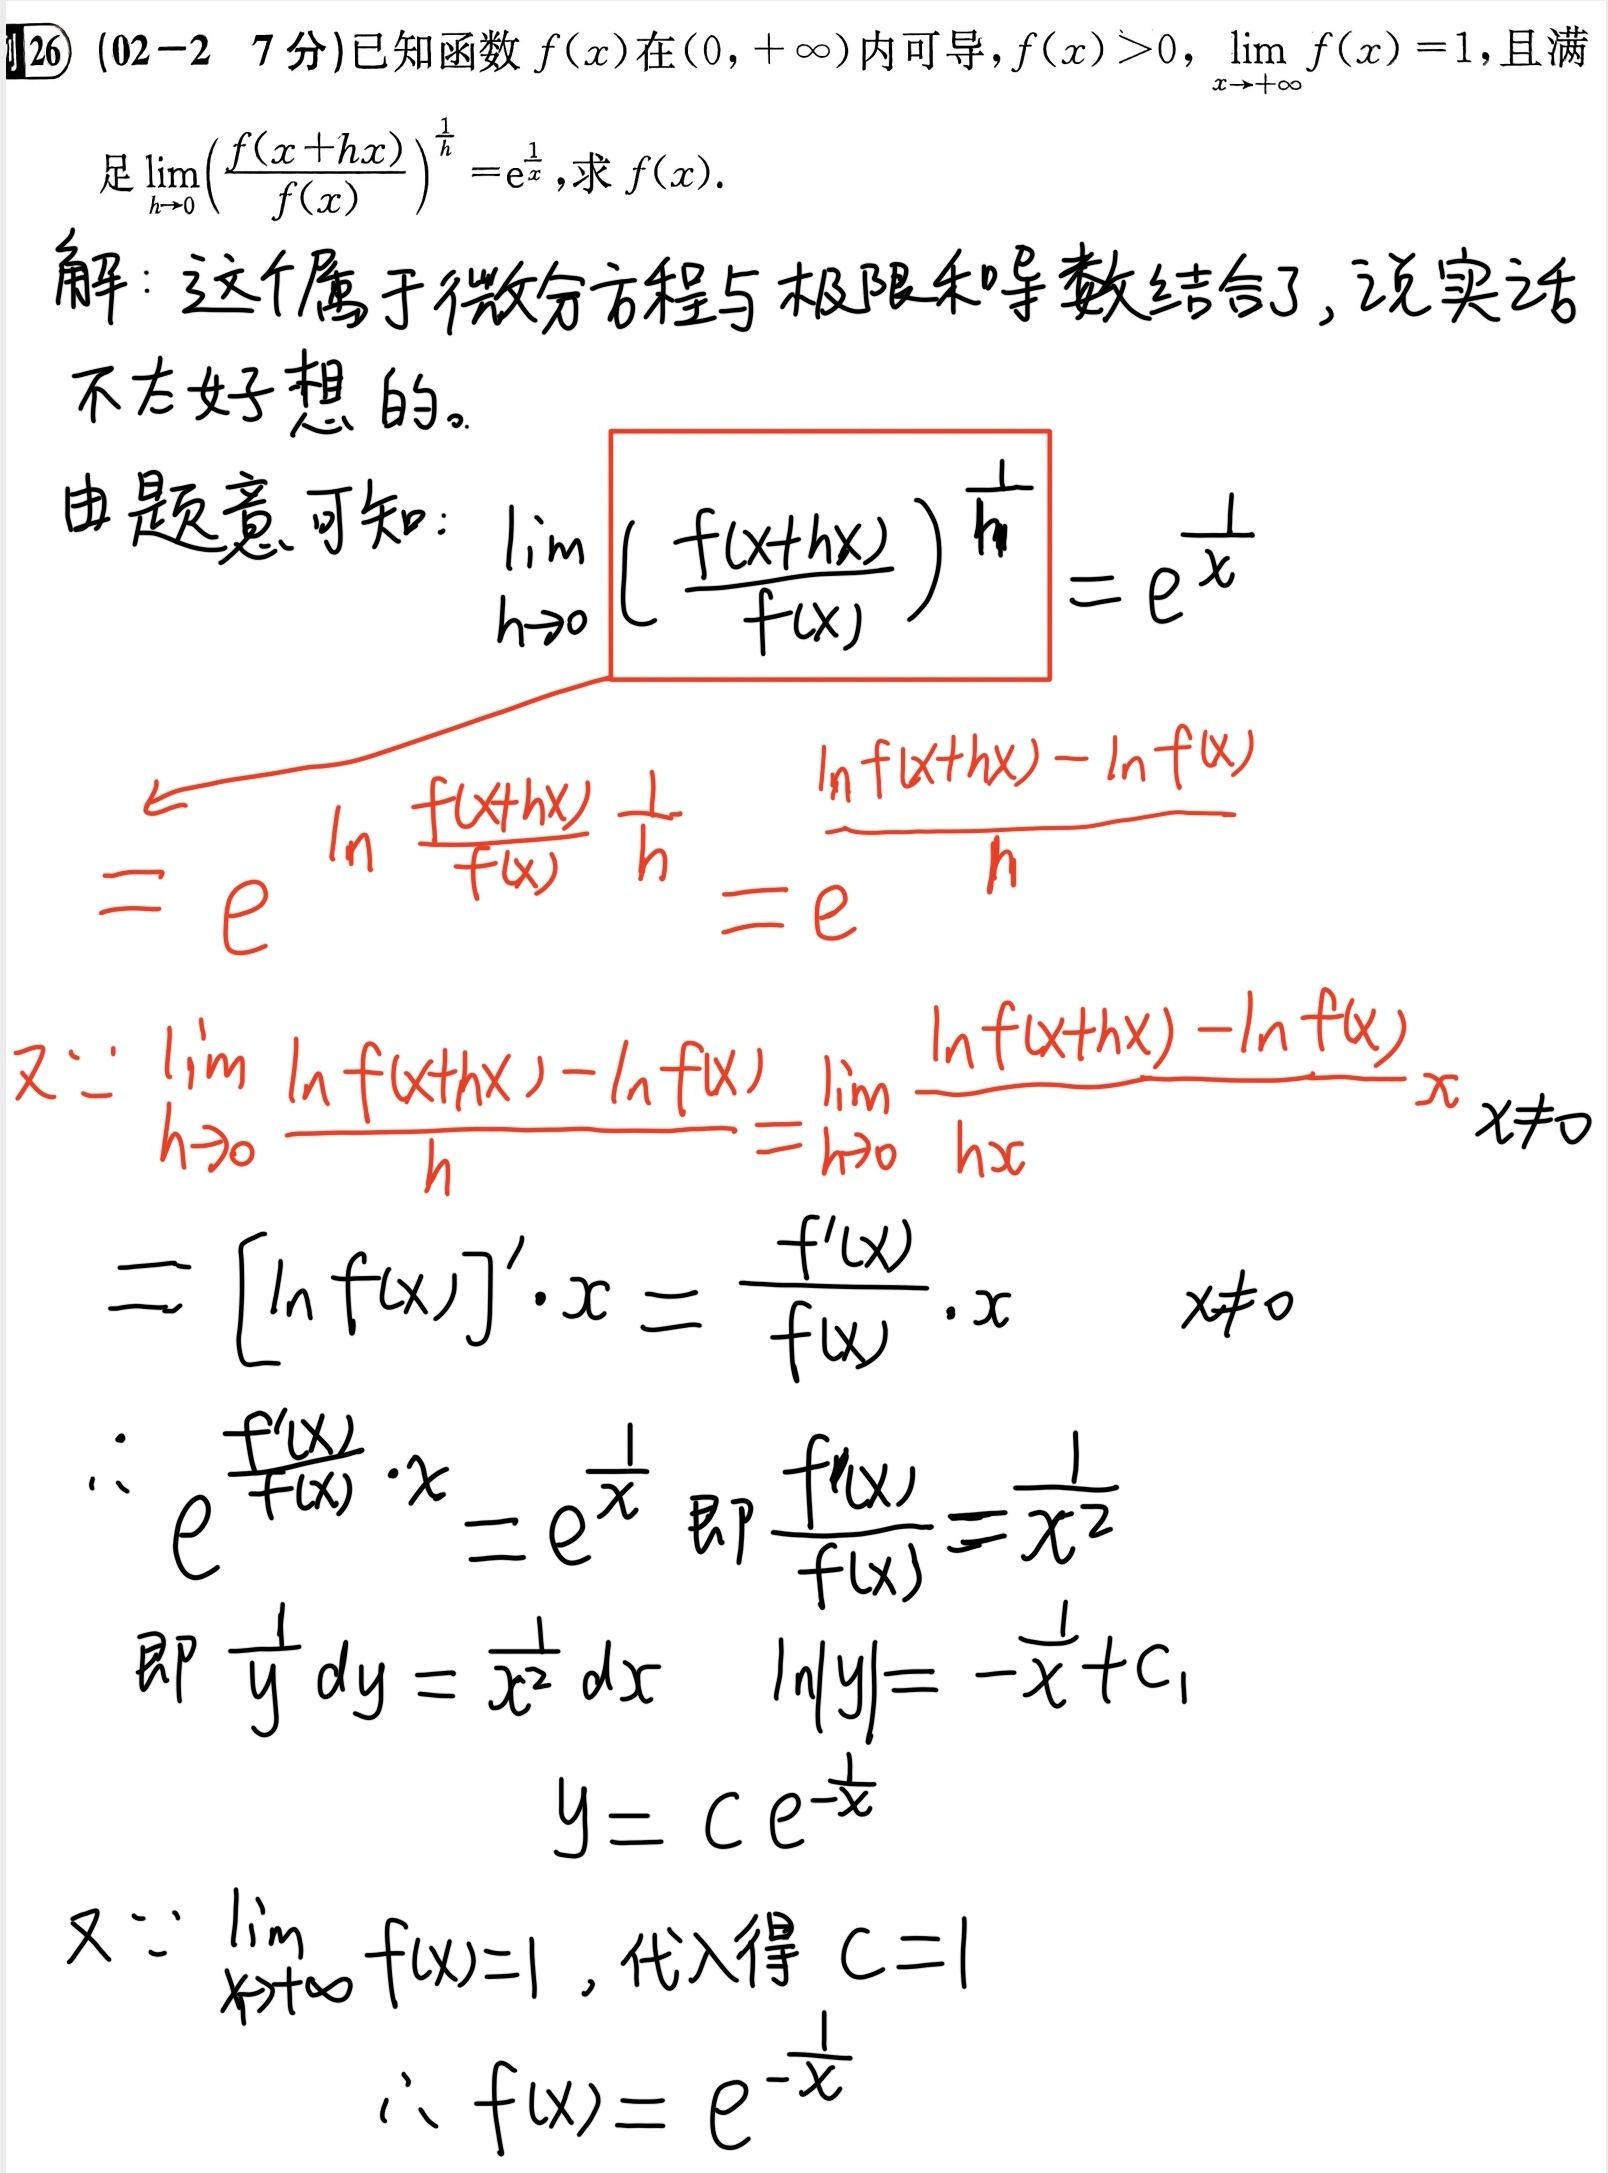 例26 (02－2 7分)已知函数 f(x)在(0,+∞)内可导,f(x)>0, lim_{x→+∞} f(x)=1,且满
足 lim_{h→0}(f(x+hx)/f(x))^{1/h}=e^{1/x},求 f(x).
解：这个属于微分方程与极限和导数结合了,说实话
不太好想的。
由题意可知：lim_{h→0}(f(x+hx)/f(x))^{1/h}=e^{1/x}
=e^{ln f(x+hx)/f(x) 1/h}=e^{(ln f(x+hx)-ln f(x))/h}
又∵ lim_{h→0} (ln f(x+hx)-ln f(x))/h = lim_{h→0} (ln f(x+hx)-ln f(x))/hx x x≠0
=[ln f(x)]'·x = f'(x)/f(x) ·x x≠0
∴ e^{f'(x)/f(x)·x}=e^{1/x} 即 f'(x)/f(x)=1/x²
即 1/y dy = 1/x² dx ln|y|=-1/x+C₁
y=Ce^{-1/x}
又∵ lim_{x→+∞} f(x)=1,代入得 C=1
∴ f(x)=e^{-1/x}